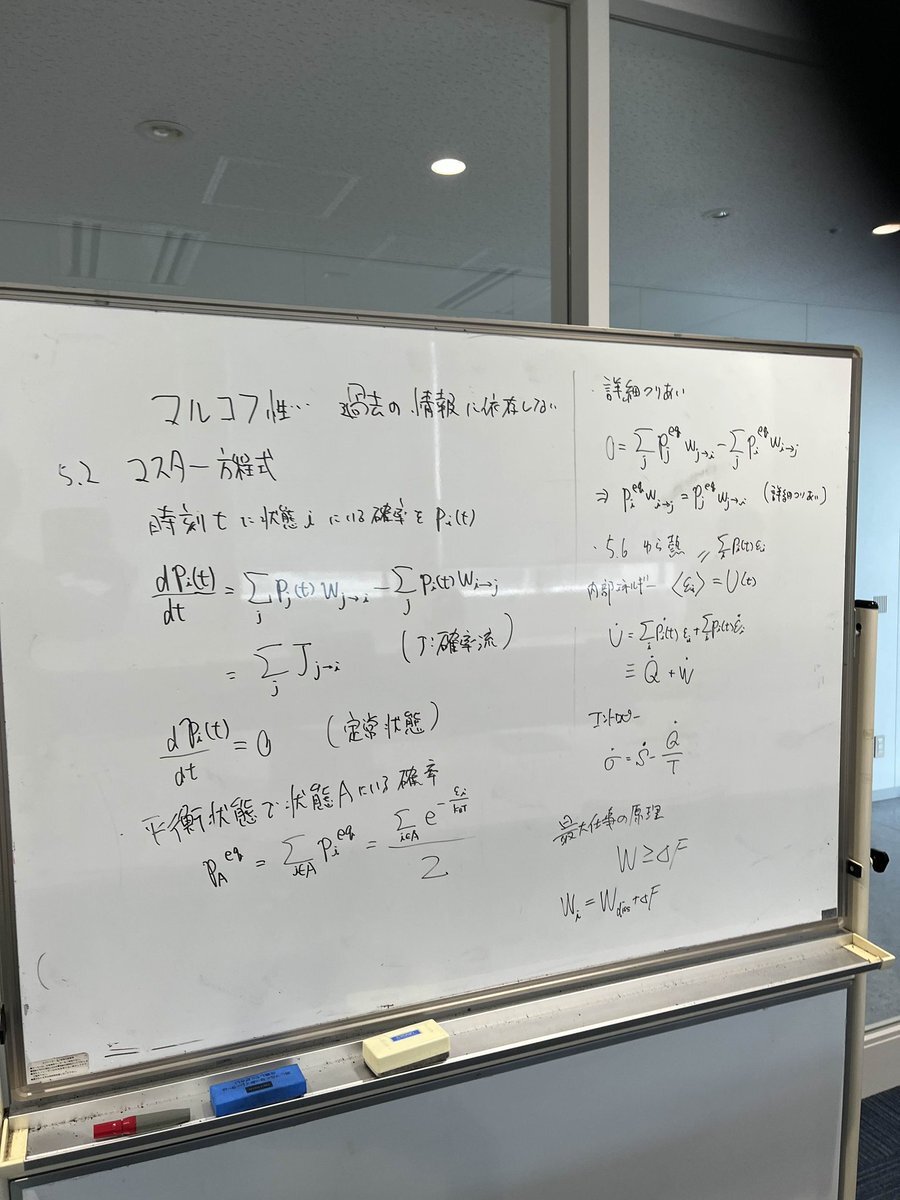 マルコフ性… 過去の情報に依存しない
5.2 マスター方程式
時刻tに状態iにいる確率をPi(t)
dPi(t)/dt = Σ_j Pj(t) W_{j→i} − Σ_j Pi(t) W_{i→j}
= Σ_j J_{j→i} (J:確率流)
dPi(t)/dt = 0 (定常状態)
・平衡状態で状態Aにいる確率
P_A^{eq} = Σ_{i∈A} P_i^{eq} = Σ_{i∈A} e^{−εi/k_BT} / Z
・詳細つりあい
0 = Σ_j P_j^{eq} W_{j→i} − Σ_j P_i^{eq} W_{i→j}
⇒ P_i^{eq} W_{i→j} = P_j^{eq} W_{j→i} (詳細つりあい)
・5.6 熱
〃 Σ_i Pi(t) εi
内部エネルギー ⟨εi⟩ = U(t)
U̇ = Σ_i Ṗi(t) εi + Σ_i Pi(t) ε̇i
≡ Q̇ + Ẇ
エントロピー
σ̇ = Ṡ − Q̇/T
最大仕事の原理
W ≥ ΔF
W_i = W_{diss} + ΔF